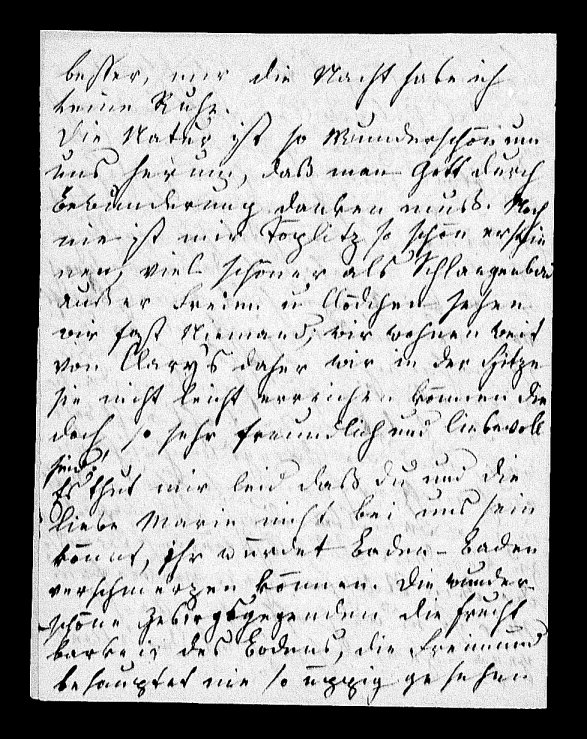 besser, nur die Nacht habe ich
keine Ruhe.
Die Natur ist so wunderschön um
uns herum, daß man Gott durch
Bewunderung danken muß. Noch
nie ist mir Töplitz so schön erschie
nen, viel schöner als Schlangenbad
außer Freim u Clödchen sehen
wir fast Niemand, wir wohnen weit
von Clary's daher wir in der Hitze
sie nicht leicht erreichen können die
doch so sehr freundlich und liebevoll
sind.
Es thut mir leid daß du und die
liebe Marie nicht bei uns sein
könnt, ihr würdet Baden-Baden
verschmerzen können. Die wunder-
schöne Gebirgsgegenden die Frucht
barkeit des Bodens, die Freimund
behauptet nie so üppig gesehen